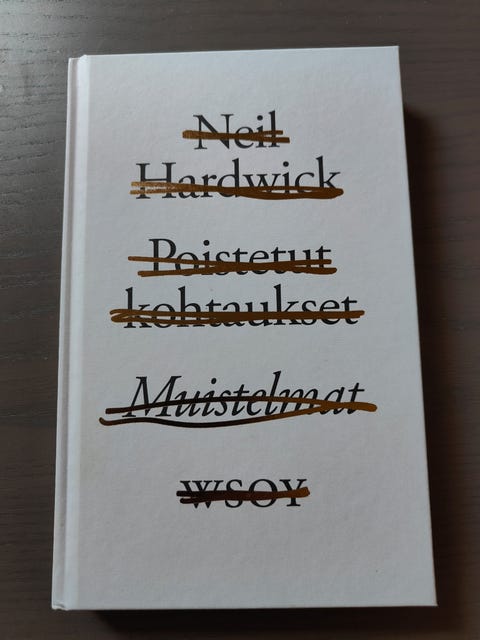 Neil
Hardwick
Poistetut
kohtaukset
Muistelmat
WSOY